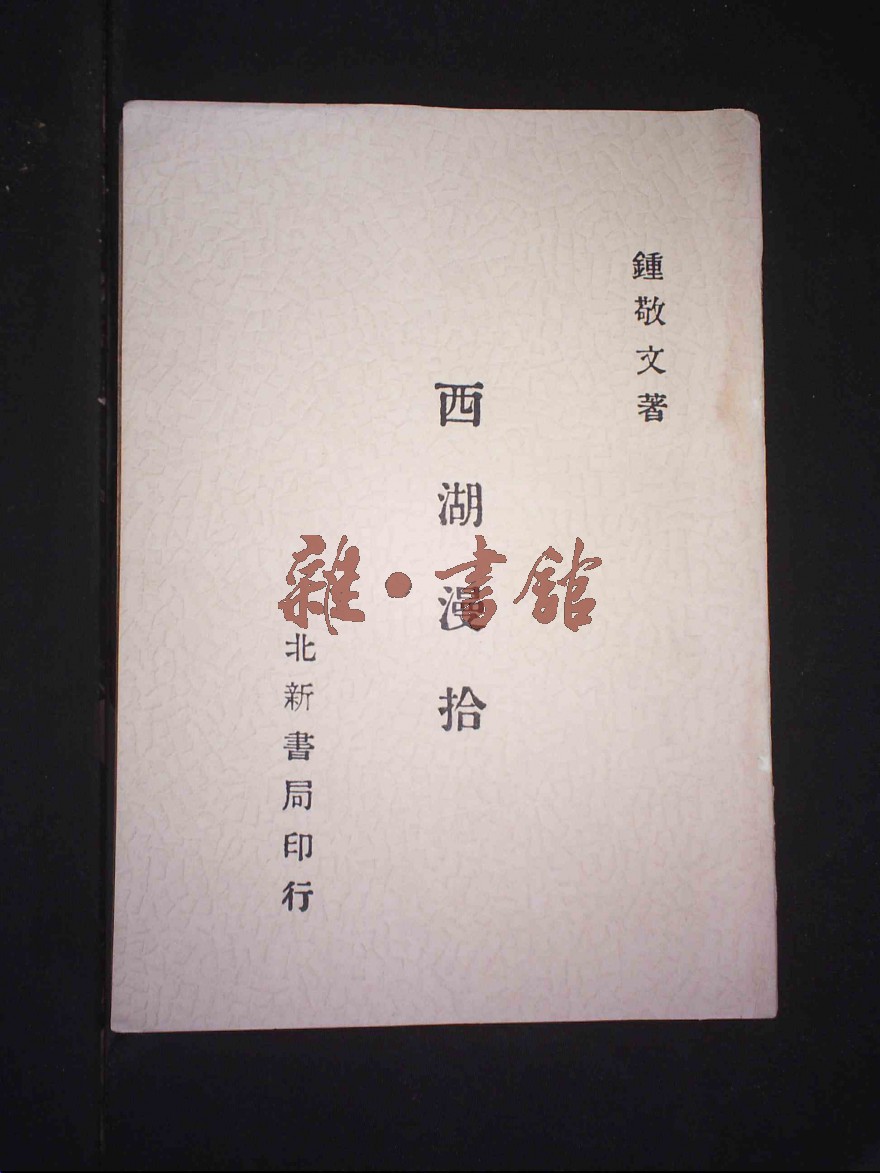 鍾敬文著
西湖漫拾
北新書局印行
雜·書館